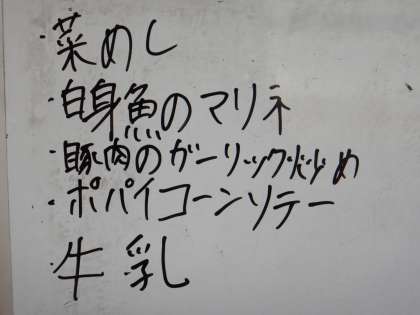 ・菜めし
・白身魚のマリネ
・豚肉のガーリック炒め
・ポパイコーンソテー
・牛乳